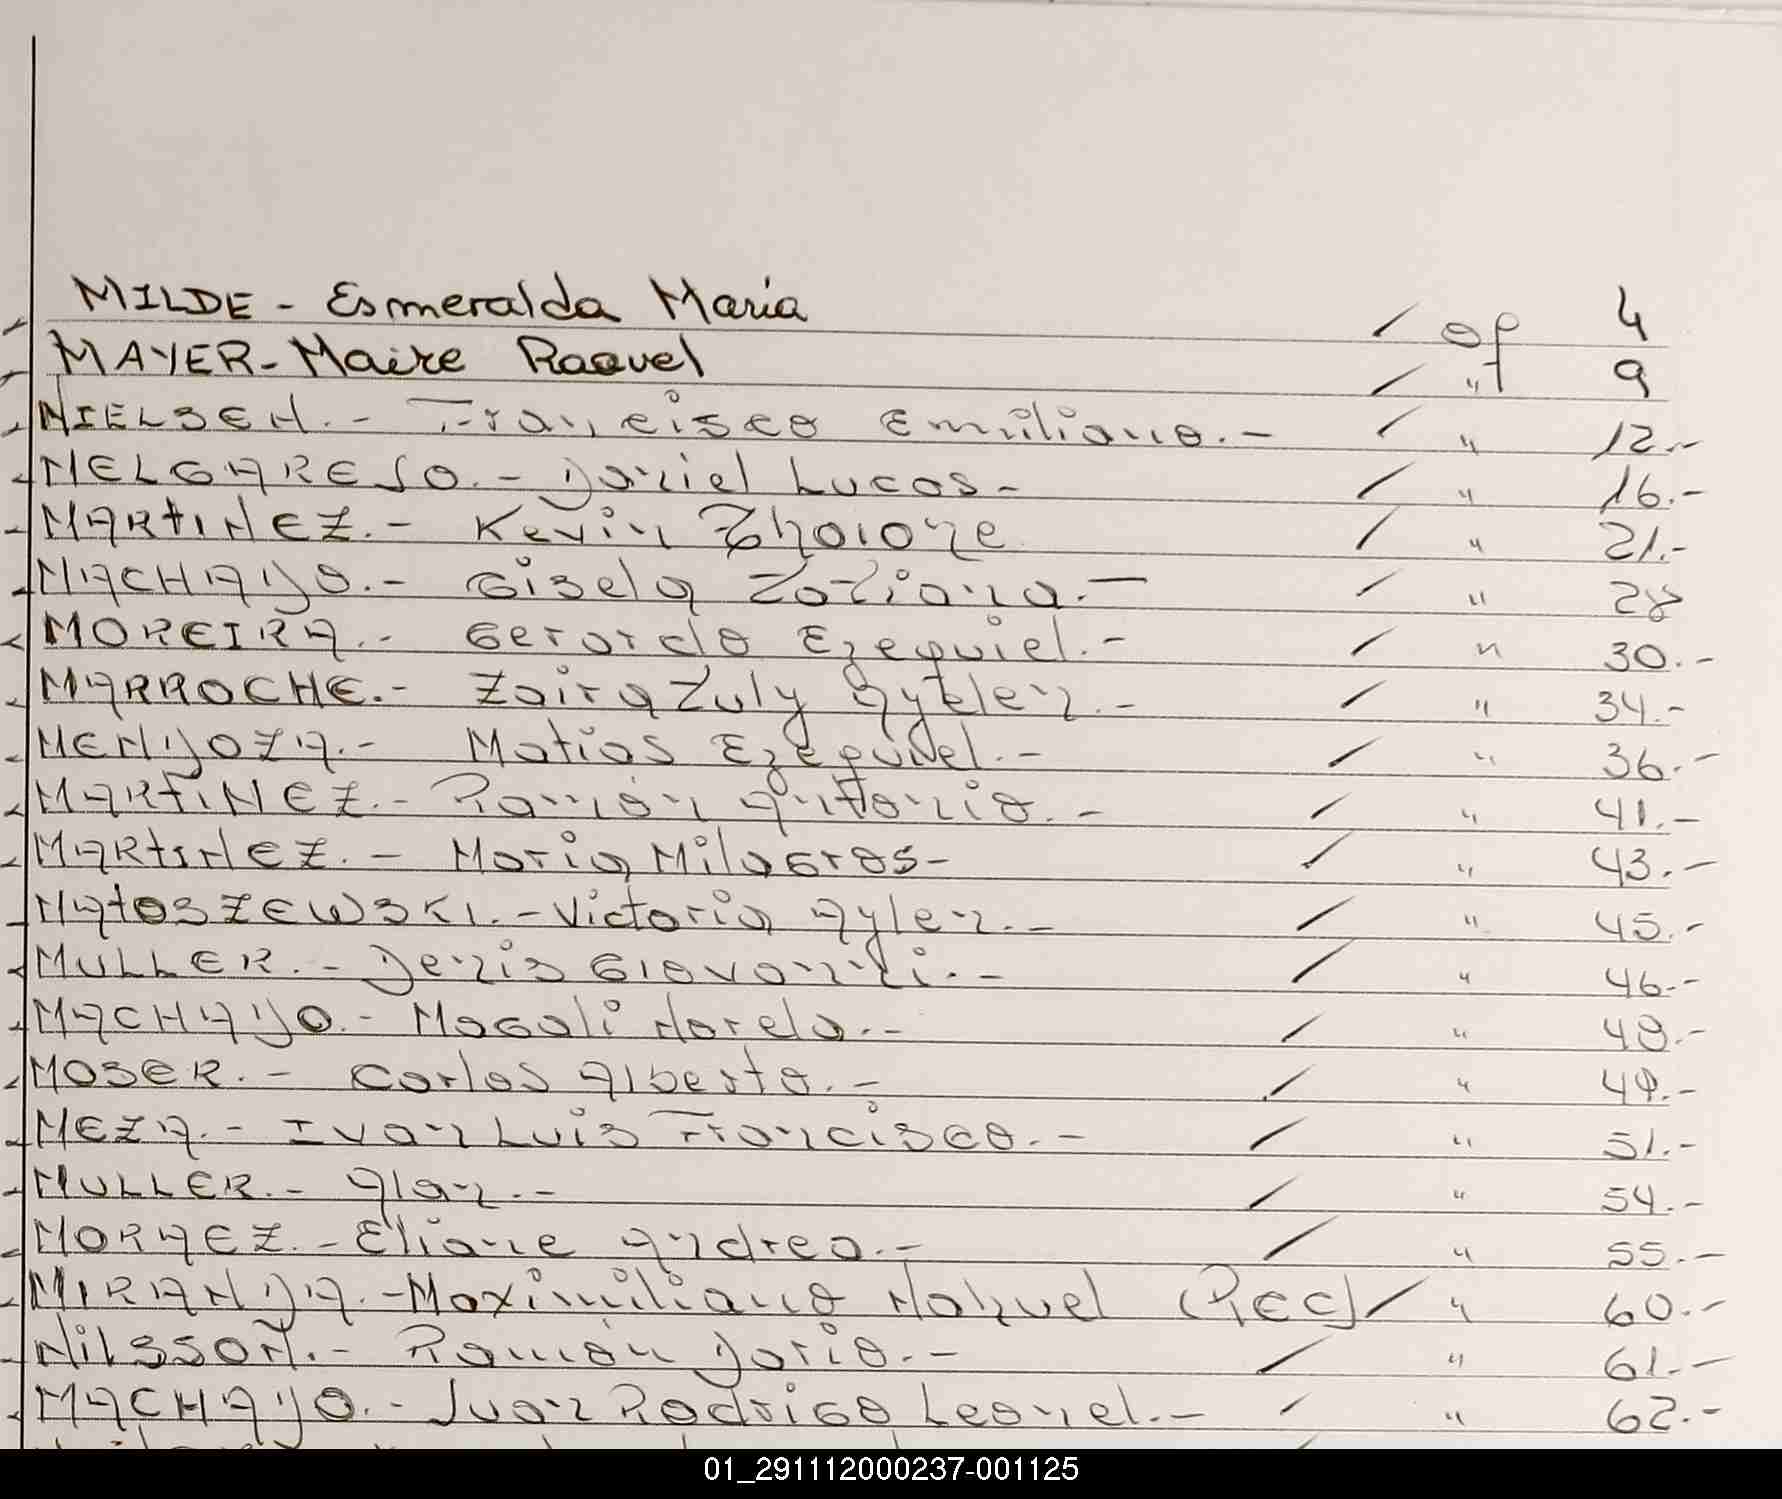 MILDE - Esmeralda Maria / of 4
MAYER - Maire Raquel / " 9
NIELSEN.- Francisco Emiliano.- / " 12.-
MELGAREJO.- Daniel Lucas- / " 16.-
MARTINEZ.- Kevin / " 21.-
MACHADO.- Gisela Tatiana.- / " 28
MOREIRA.- Gerardo Ezequiel.- / " 30.-
MARROCHE.- Zaira Zuly Aytelen.- / " 34.-
MENDOZA.- Matias Ezequiel.- / " 36.-
MARTINEZ.- Ramón Antonio.- / " 41.-
MARTINEZ.- Maria Milagros- / " 43.-
MATOSZEWSKI.- Victoria Aylen.- / " 45.-
MULLER.- Denis Giovanni.- / " 46.-
MACHADO.- Magali Norela.- / " 48.-
MOSER.- Carlos Alberto.- / " 49.-
MEZA.- Ivan Luis Francisco.- / " 51.-
MULLER.- Alan.- / " 54.-
MORAEZ.- Eliane Andrea.- / " 55.-
MIRANDA.- Maximiliano Nahuel (REC) / " 60.-
NILSSON.- Ramón Dario.- / " 61.-
MACHADO.- Juan Rodrigo Leonel.- / " 62.-
01_291112000237-001125